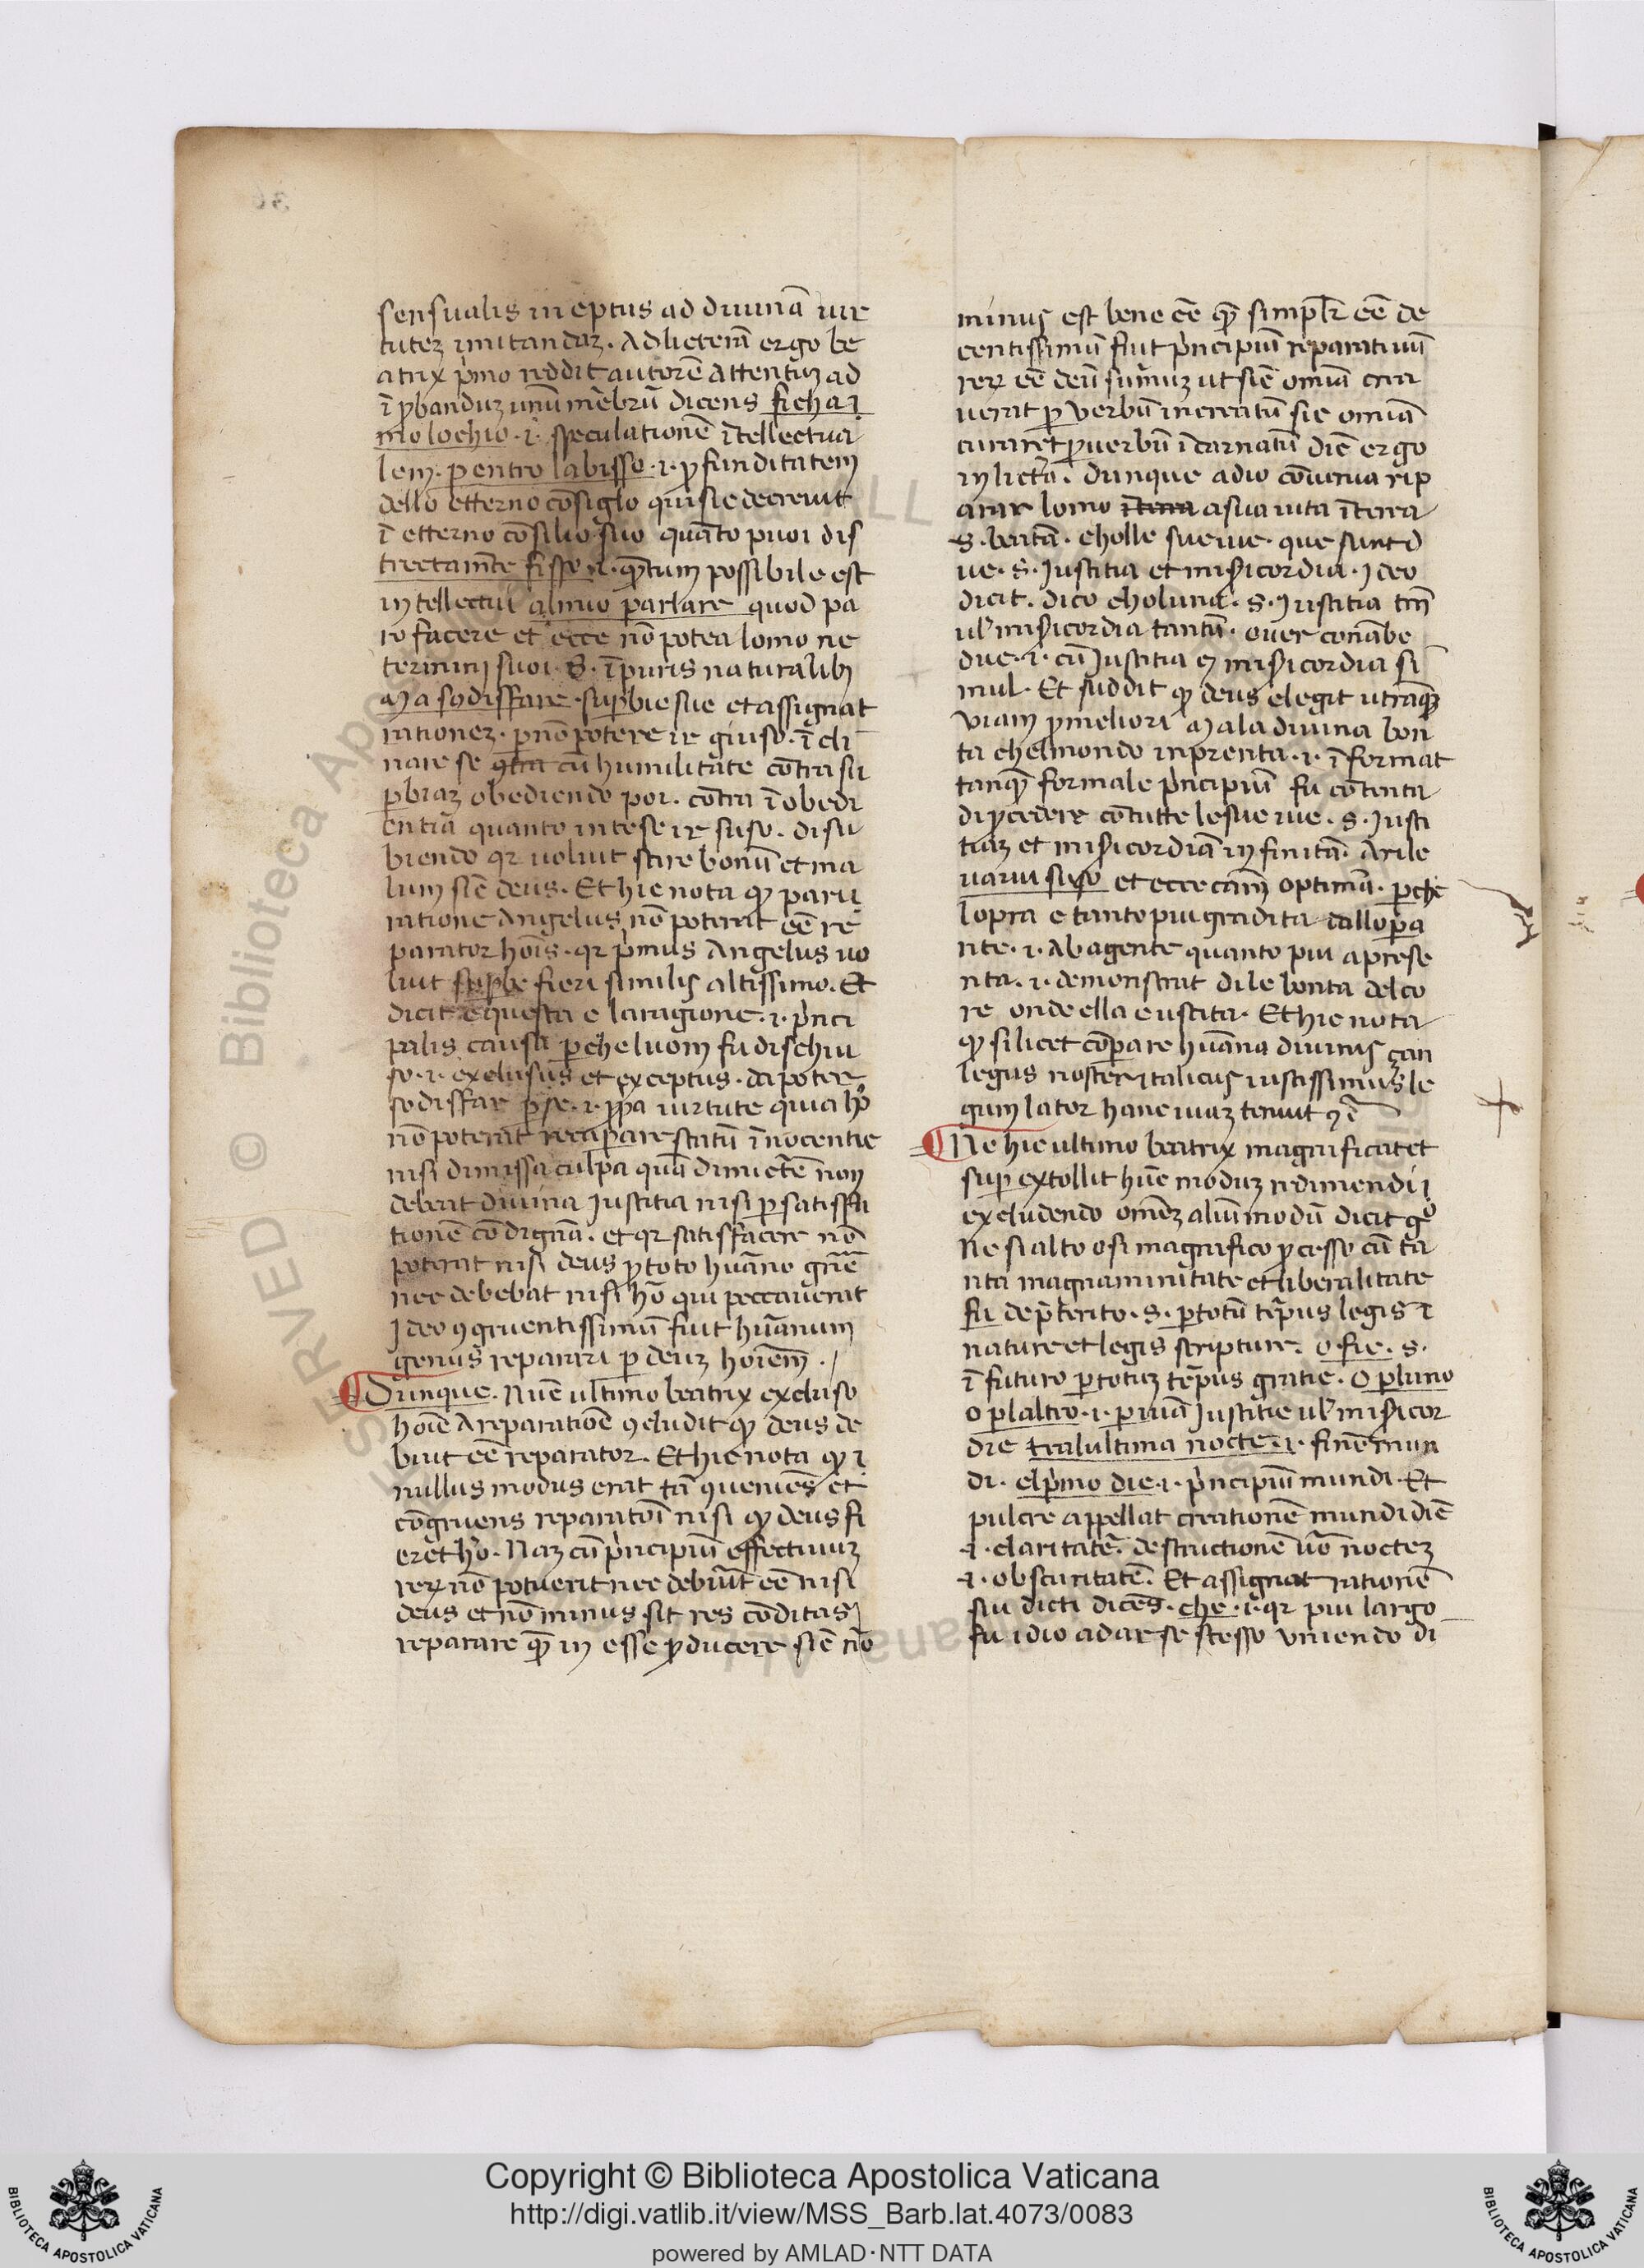 sensualis in eptus ad diuinā uir
tutez imitandaz. Ad licterā ergo be
atrix p̓mo reddit autorē attentuz ad
ī ꝓbanduz unū mēbrū dicens ficha ⁊
mo lochio .i. speculationē ītellectua
lem. p entro labisso .i. ꝓfunditatem
dello etterno cōsiglo qui sic decreuit
ī etterno cōsilio suo quāto puoi dis
trectamēte fisso .i. qᷓtum possibile est
intellectui almio parlare quod pa
ro facere et ecce nō potea lomo ne
termini suoi .S. ī puris naturalibꝫ
Ma sodisffare .supbie sue et assignat
rationez. p nō potere ir giuso. ī cli
nare se cū humilitate contra su
pbiaz obediendo poi. contra īobedi
entiā quanto intese ir suso. disu
biendo qr uoluit scire bonū et ma
lum sic̄ deus. Et hic nota qꝫ pari
ratione Angelus nō poterat eē re
parator hoīs. qr p̓mus Angelus uo
luit supbe fieri similis altissimo. Et
dicit e questa e la ragione .i. p̓nci
palis causa pche luom fu dischiu
so .i. exclusus et exceptus. da poter
sodisffar p se .i. ꝓpa uirtute quia hō
nō poterat recuperare statū īnocentie
nisi dimissa culpa quā dimictē non
debeat diuina Iustitia nisi p satisfa
tionē cōdignā. et qr satisfacere nō
poterat nisi deus ꝓ toto huāno gnē̄
nec debebat nisi hō qui peccauerat
Ideo ꝯgruentissimū fuit huānum
genus reparari p deuz hoīem.
Dunque. Nūc ultimo beatrix excluso
hoīe A reparatiōe ꝯcludit qꝫ deus de
buit eē reparator. Et hic nota qꝫ
nullus modus erat tā ꝯueniēs et
cōgruens reparatōi nisi qꝫ deus fi
eret hō. Naz cū p̓ncipiū effectiuuz
reꝝ nō potuerit nec debuīt eē nisi
deus et nō minus sit res cōditas
reparare qᷓ in esse ꝓducere sic̄ nō
minus est bene eē qᷓ simplr̄ eē de
centissimū fuit p̓ncipiū reparatiuū
reꝝ eē deū sūmuz ut sic̄ omiā crea
uerat p verbū increatū sic omiā
curaret p uerbū īcarnatū dic̄ ergo
in lictā. Dunque adio cōuenia rip
arar lomo ītera asua uita ītera
.S. beatā. cholle sue uie. que sunt d
ue .S. Iustitia et misericordia. Ideo
dicit. dico choluna .S. Iustitia tm̄
ul̓ misericordia tantū. ouer conābe
due .i. cū Iustitia et misericordia si
mul. Et suddit qꝫ deus elegit utraqꝫ
viam ꝓ meliori Mala diuina bon
ta chelmondo inprenta .i. īformat
tanqᷓ formale p̓ncipiū fu cōtenta
di ꝓcedere cō tutte le sue uie .S. Iusti
tiaz et misericordiā infinitā. Arile
uarui suso et ecce cām̄ optimā. pche
lopra e tanto piu gradita dallopa
nte .i. Ab agente quanto piu aprese
nta .i. demonstrat di le bonta del co
re onde ella e uscita. Et hic nota
qꝫ si licet cōpare huāna diuinis çan
legus noster italicus iustissimus le
gum lator hanc uiaz tenuit
Ne hic ultimo beatrix magnificat et
sup extollit hūc moduz redimendi
excludendo omēz aliū modū dicit gᵒ
Ne si alto o si magnifico ꝓcesso cū ta
nta magnanimitate et liberalitate
fu de p̄terito .S. p totū tēpus legis
nature et legis scripture. o fie .S.
ī futuro p totuz tēpus gratie. O pluno
o plaltro .i. p uiā Iustitie ul̓ misericor
die tralultima nocte .i. finē mun
di. elp̓mo die .i. p̓ncipiū mundi. Et
pulcre appellat creationē mundi diē
.i. claritatē. destructionē ūo noctez
.i. obscuritatē. Et assignat rationē
sui dicti dicēs. che .i. qr piu largo
fu idio adar se stesso vniendo di
Copyright © Biblioteca Apostolica Vaticana
http://digi.vatlib.it/view/MSS_Barb.lat.4073/0083
powered by AMLAD·NTT DATA
BIBLIOTECA APOSTOLICA VATICANA
BIBLIOTECA APOSTOLICA VATICANA